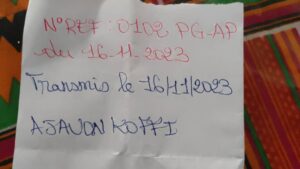 N°REF : 0102 PG-AP
du 16-11-2023
Transmis le 16/11/2023
AJAVON KOFFI